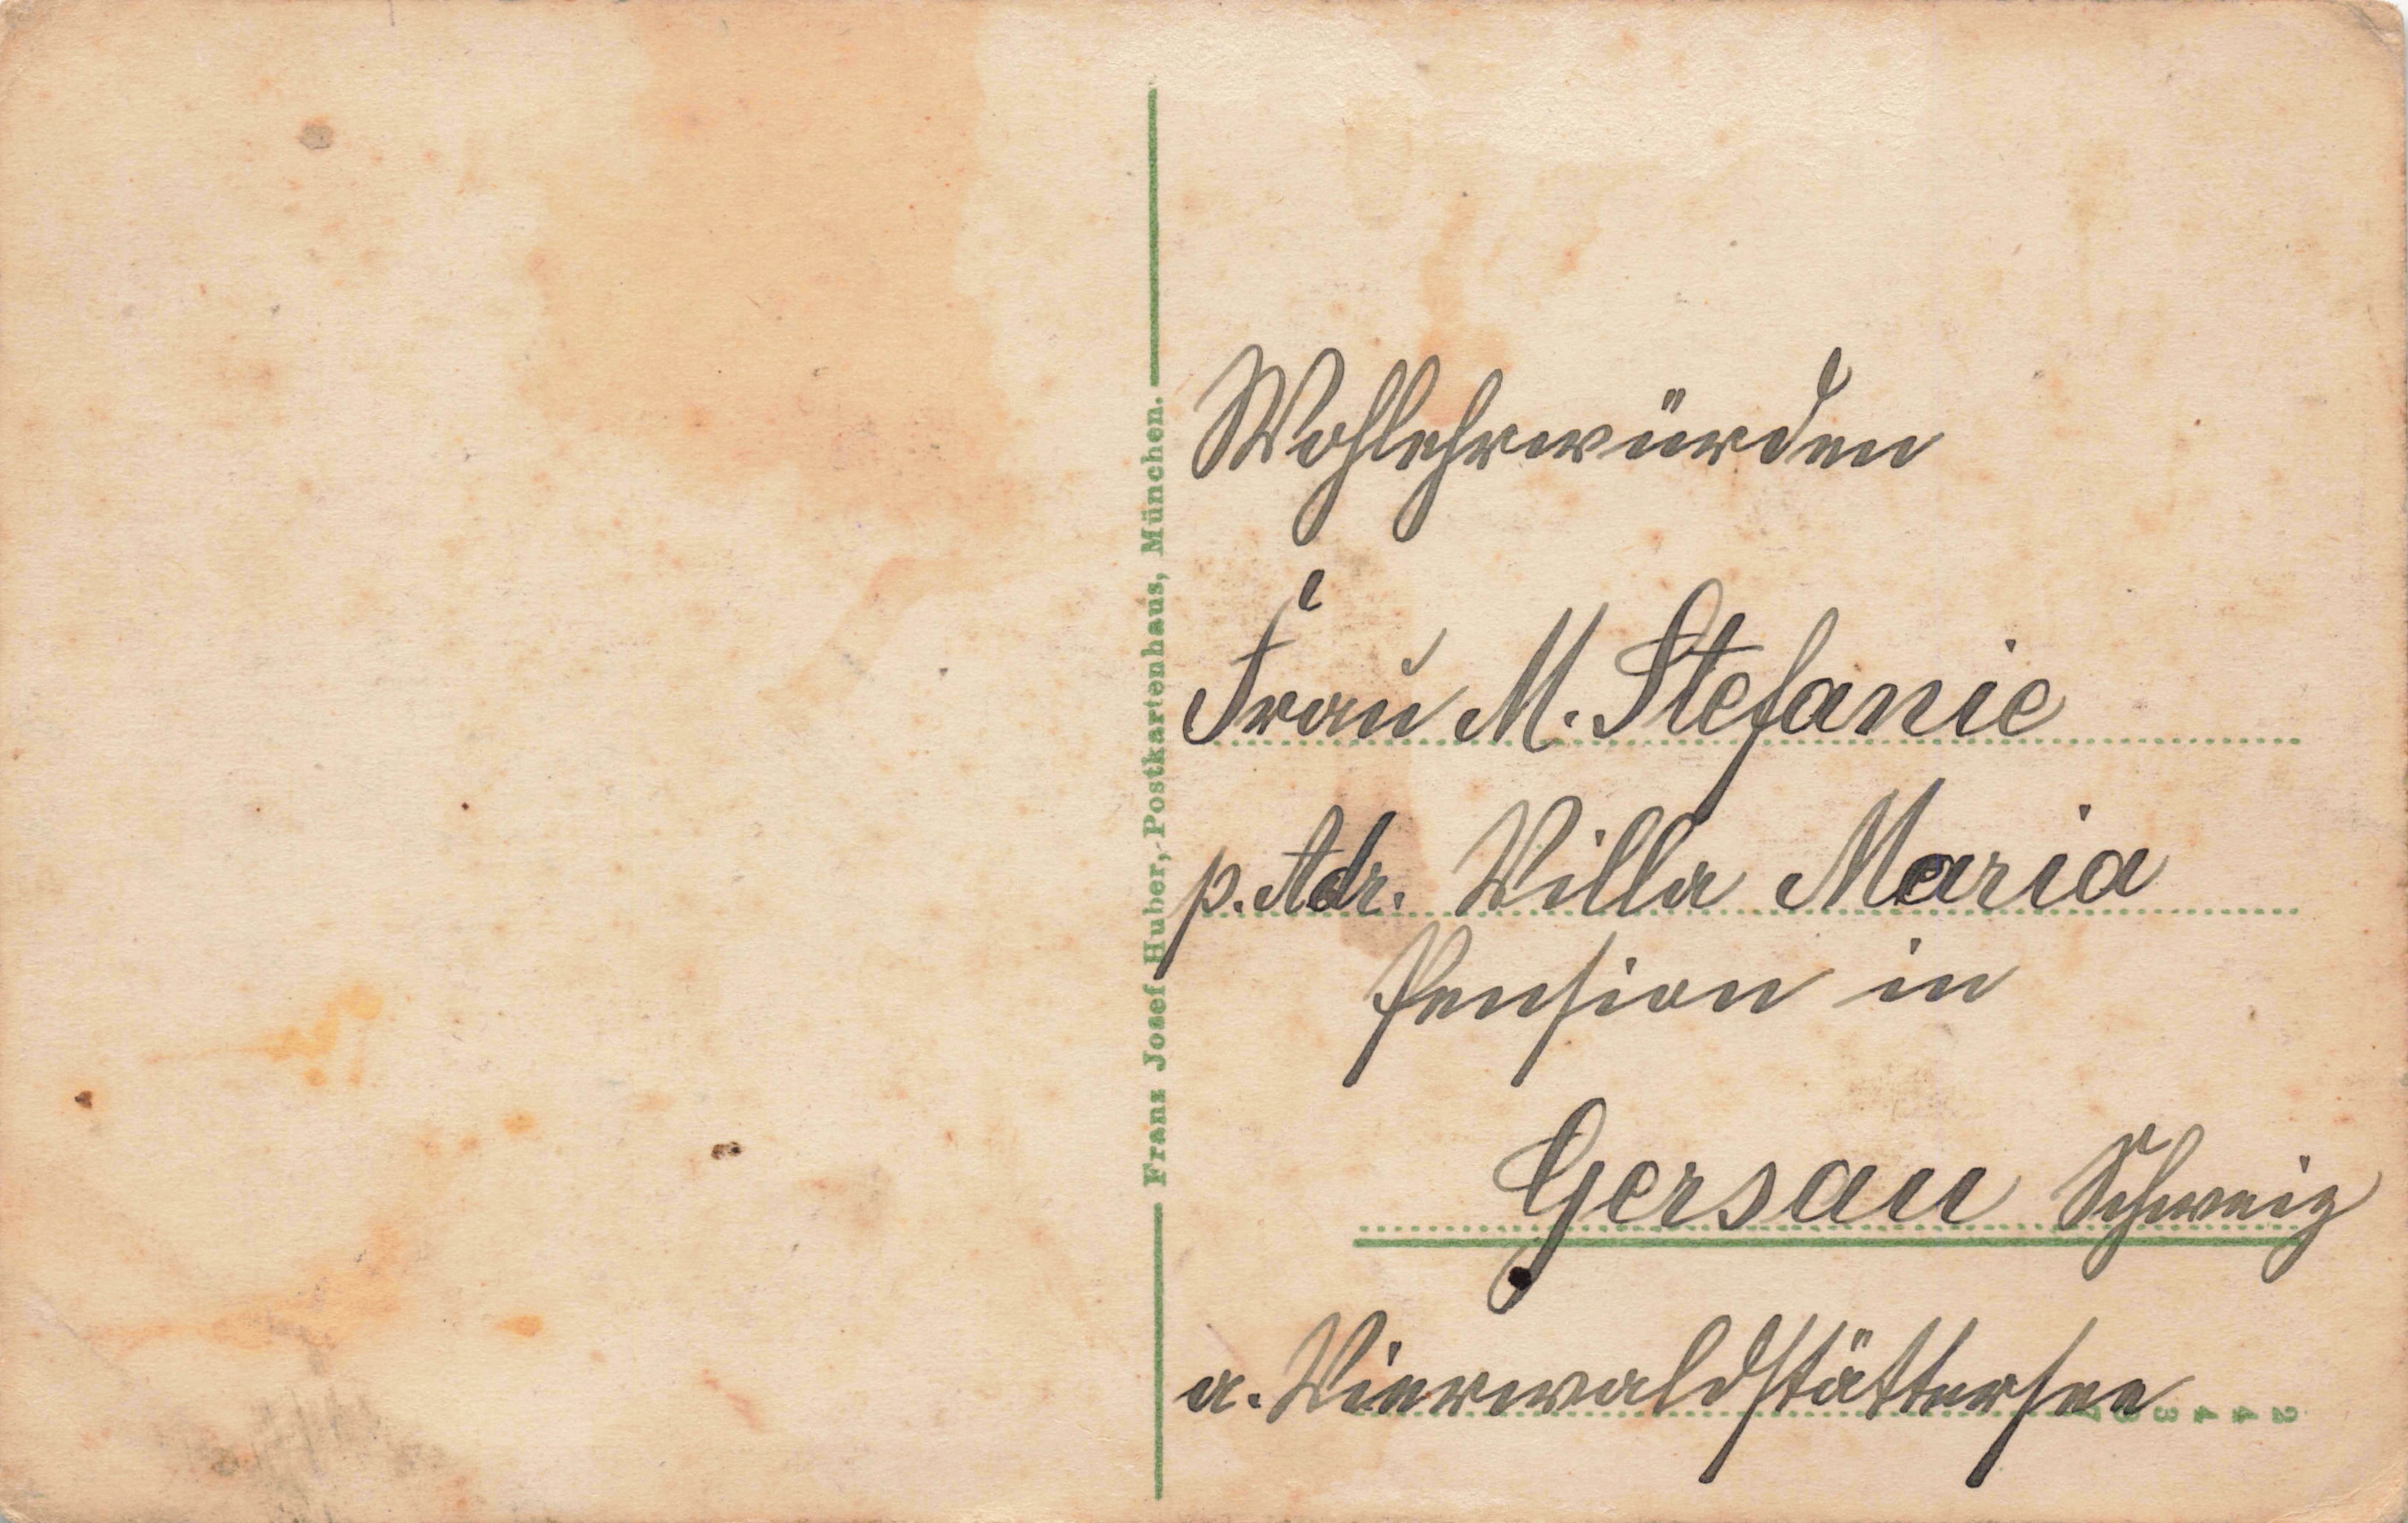 Franz Josef Huber, Postkartenhaus, München.
Wohlehrwürden
Frau M. Stefanie
p. Adr. Villa Maria
Pension in
Gersau Schweiz
a. Vierwaldstättersee